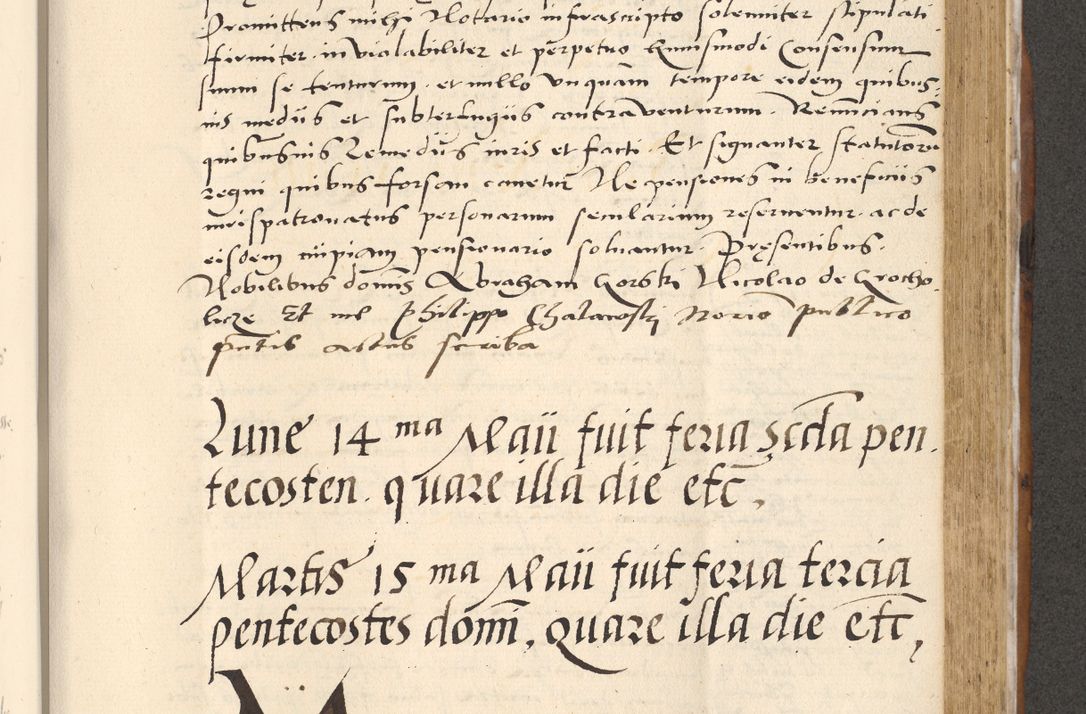 Promittens mihi Notario infrascripto solenniter stipulati
firmiter inviolabiliter et perpetuo huiusmodi consensum
suum se tenturum et nullo unquam tempore eidem quibus
uis medijs et subterfugijs contrauenturum. Renuncians
quibusuis remedijs iuris et facti. Et signanter statutoru
regni quibus forsan cauetur Ne pensiones in beneficijs
iurispatronatus personarum secularium reseruentur. ac de
eisdem cuipiam pensionario soluantur. Pręsentibus.
Nobilibus domis Abraham Gorski Nicolao de Grocho
licze Et me Philippo Chalawski Norio publico
pntis actus scriba
Lune 14 ma Maii fuit feria scda pen.
tecosten. quare illa die etc,
Martis 15 ma Maii fuit feria tercia
pentecostes domi, quare illa die etc,
M